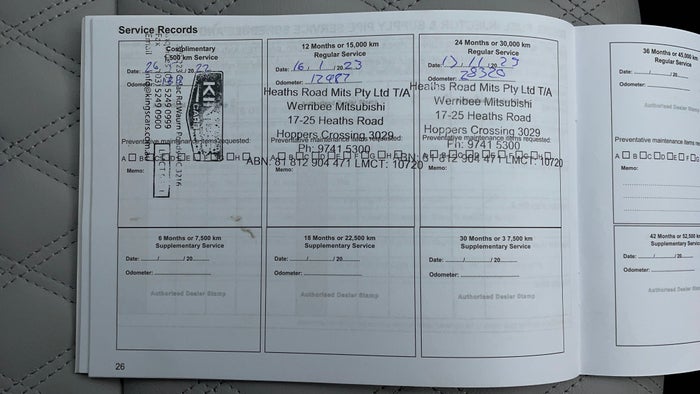 Service Records
Complimentary
1,500 km Service
Date: 26 / / 20 22
Odometer:
KINGS
(03) 5249 0999
(03) 5249 0900
info@kingscars.com.au
Email
Fax
LMCT
Preventative maintenance items requested:
A B C D E F G H
Memo:
12 Months or 15,000 km
Regular Service
Date: 16 / 1 / 20 23
Odometer: 12487
Heaths Road Mits Pty Ltd T/A
Werribee Mitsubishi
17-25 Heaths Road
Hoppers Crossing 3029
Ph: 9741 5300
ABN: 81 812 904 471 LMCT: 10720
Preventative maintenance items requested:
A B C D E F G H
Memo:
24 Months or 30,000 km
Regular Service
Date: 13 / 11 / 20 23
Odometer: 28320
Heaths Road Mits Pty Ltd T/A
Werribee Mitsubishi
17-25 Heaths Road
Hoppers Crossing 3029
Ph: 9741 5300
ABN: 81 812 904 471 LMCT: 10720
Preventative maintenance items requested:
A B C D E F G H
Memo:
36 Months or 45,000
Regular Service
Date: / / 20
Odometer:
Authorised Dealer Stamp
Preventative maintenance items
A B C D E F
Memo:
6 Months or 7,500 km
Supplementary Service
Date: / / 20
Odometer:
Authorised Dealer Stamp
18 Months or 22,500 km
Supplementary Service
Date: / / 20
Odometer:
Authorised Dealer Stamp
30 Months or 3 7,500 km
Supplementary Service
Date: / / 20
Odometer:
Authorised Dealer Stamp
42 Months or 52,500 k
Supplementary Servi
Date: / / 20
Odometer:
Authorised Dealer Stam
26